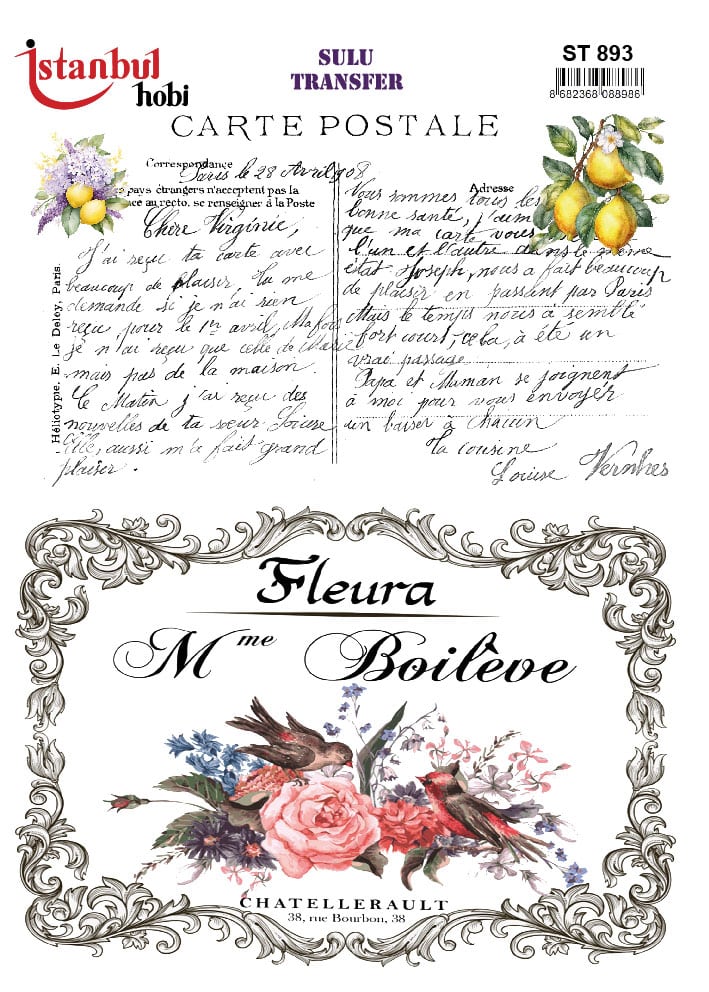 istanbul hobi
SULU
TRANSFER
ST 893
8 682368 088986
CARTE POSTALE
Correspondance
Paris le 28 Avril 908
pays étrangers n'acceptent pas la
ce au recto. se renseigner à la Poste
Chère Virginie,
J'ai reçu ta carte avec
beaucoup de plaisir, tu me
demande si je n'ai rien
reçu pour le 1er avril, Ma foi
je n'ai reçu que celle de Marie
mais pas de la maison.
Ce Matin j'ai reçu des
nouvelles de ta sœur Louise
Elle, aussi m'a fait grand
plaisir.
Héliotypie, E. Le Deley, Paris.
Adresse
Nous sommes tous les
bonne santé, j'aim
que ma carte vous
l'un et l'autre dans le même
état Joseph, nous a fait beaucoup
de plaisir en passant par Paris
Mais le temps nous a semblé
fort court, cela, à été un
vrai passage
Papa et Maman se joignent
à moi pour vous envoyer
un baiser à chacun
Ta cousine
Louise Vernhes
Fleura
Mme Boilève
CHATELLERAULT
38, rue Bourbon, 38